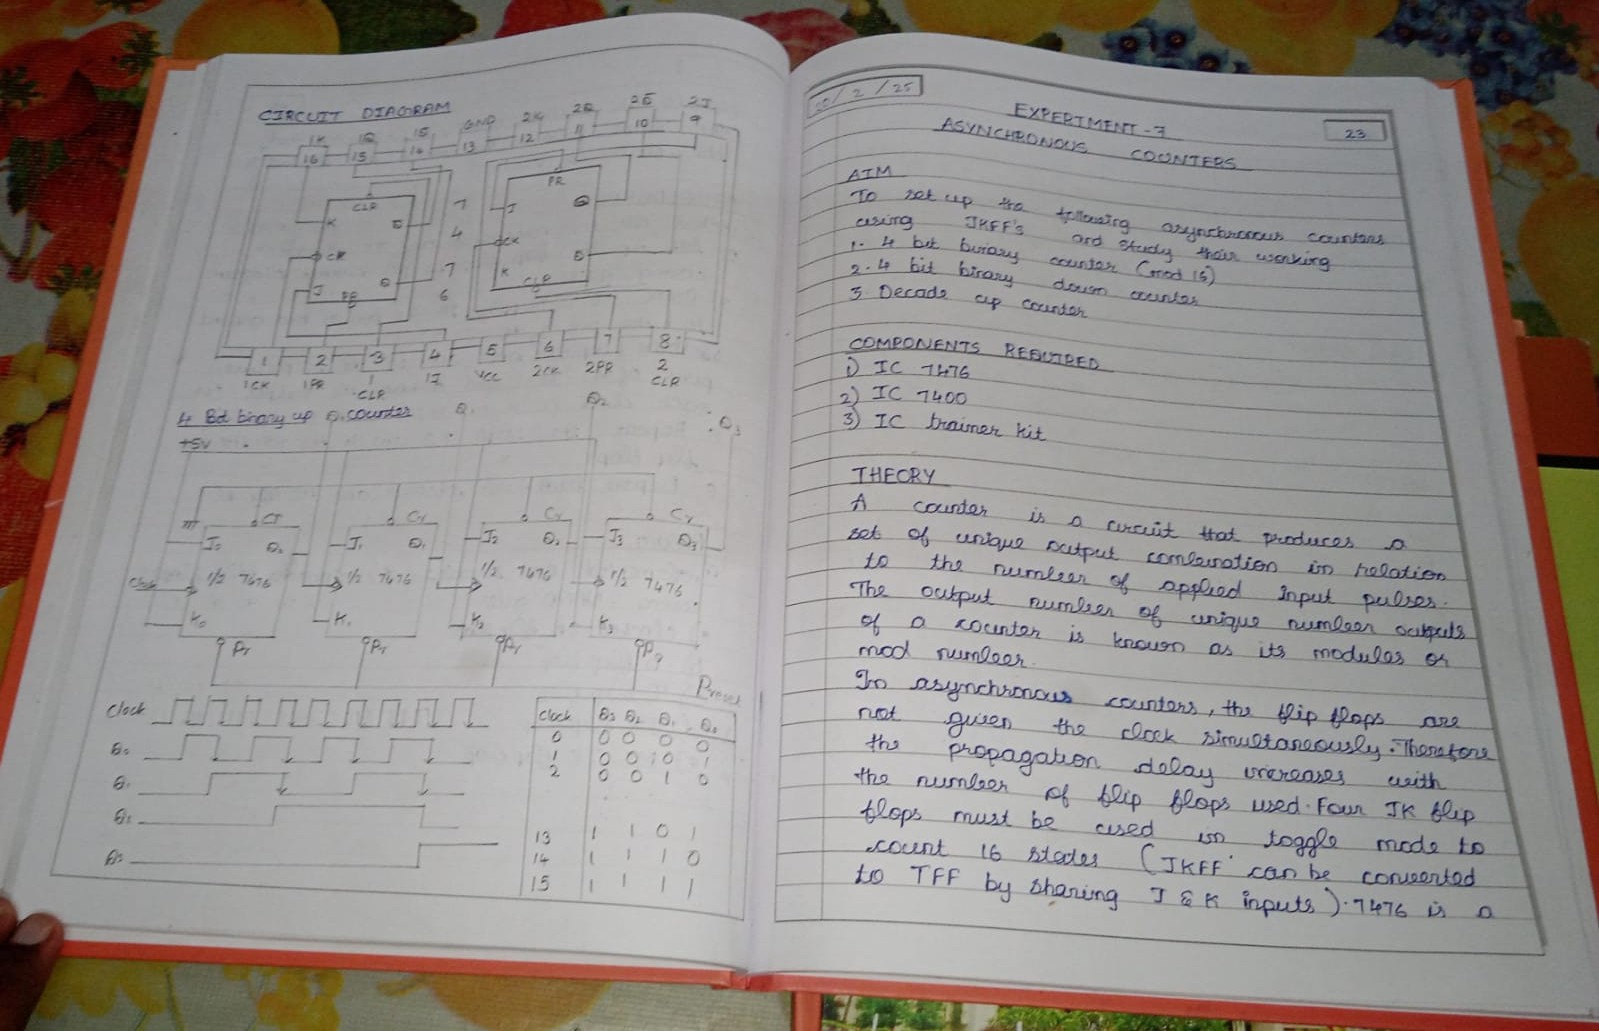 CIRCUIT DIAGRAM
1K 1Q 15 GND 2K 2Q 2Q 2J
16 15 14 13 12 11 10 9
CLR
K
CK
J
PR
7
4
7
6
PR
J
CK
K
CLR
1 2 3 4 5 6 7 8
1CK 1PR 1 CLR 1J VCC 2CK 2PR 2 CLR
4 Bit binary up counter
Q1 Q2 Q3
+5V
Cr Cr Cr
J0 Q0 J1 Q1 J2 Q2 J3 Q3
Clock 1/2 7476 1/2 7476 1/2 7476 1/2 7476
K0 K1 K2 K3
Pr Pr Pr Pr
Preset
Clock
Q0
Q1
Q2
Q3
Clock Q3 Q2 Q1 Q0
0 0 0 0 0
1 0 0 0 1
2 0 0 1 0
13 1 1 0 1
14 1 1 1 0
15 1 1 1 1
20/2/25
EXPERIMENT-7
23
ASYNCHRONOUS COUNTERS
AIM
To set up the following asynchronous counters
using JKFF's and study their working
1. 4 bit binary counter (mod 16)
2. 4 bit binary down counter
3 Decade up counter
COMPONENTS REQUIRED
1) IC 7476
2) IC 7400
3) IC trainer kit
THEORY
A counter is a circuit that produces a
set of unique output combination in relation
to the number of applied input pulses.
The output number of unique number outputs
of a counter is known as its modulus or
mod number.
In asynchronous counters, the flip flops are
not given the clock simultaneously. Therefore
the propagation delay increases with
the number of flip flops used. Four JK flip
flops must be used in toggle mode to
count 16 states (JKFF can be converted
to TFF by sharing J & K inputs). 7476 is a